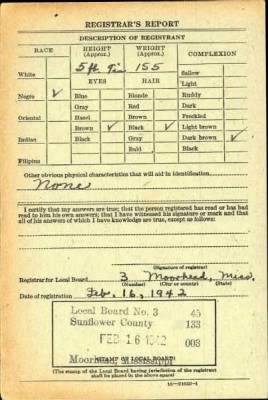 REGISTRAR'S REPORT
DESCRIPTION OF REGISTRANT
RACE HEIGHT (Approx.) WEIGHT (Approx.) COMPLEXION
White 5 ft 7in 155 Sallow
EYES HAIR Light
Negro ✓ Blue Blonde Ruddy
Gray Red Dark
Oriental Hazel Brown Freckled
Brown ✓ Black ✓ Light brown
Indian Black Gray Dark brown ✓
Bald Black
Filipino
Other obvious physical characteristics that will aid in identification
None
I certify that my answers are true; that the person registered has read or has had
read to him his own answers; that I have witnessed his signature or mark and that
all of his answers of which I have knowledge are true, except as follows:
(Signature of registrar)
Registrar for Local Board 3 Moorhead, Miss.
(Number) (City or county) (State)
Date of registration Feb. 16, 1942
Local Board No. 3 45
Sunflower County 133
FEB 16 1942 003
Moorhead, Mississippi
(STAMP OF LOCAL BOARD)
(The stamp of the Local Board having jurisdiction of the registrant
shall be placed in the above space)